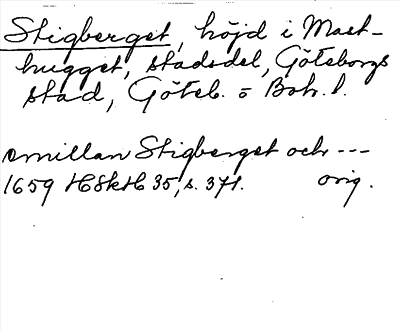 Stigberget, höjd i Mast-
hugget, stadsdel, Göteborgs
stad, Göteb. o Boh. l.
emillan Stigberget och ---
1659 HSkH 35, s. 371. orig.